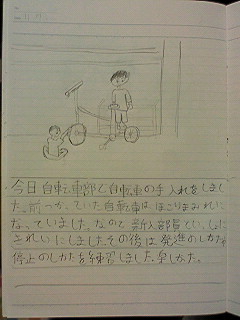 今日自転車部で自転車の手入れをしまし
た。前つかっていた自転車はほこりまみれに
なっていました。なので新入部員でいっしょに
きれいにしました。その後は発進のしかた
停止のしかたを練習しました。楽しかた。